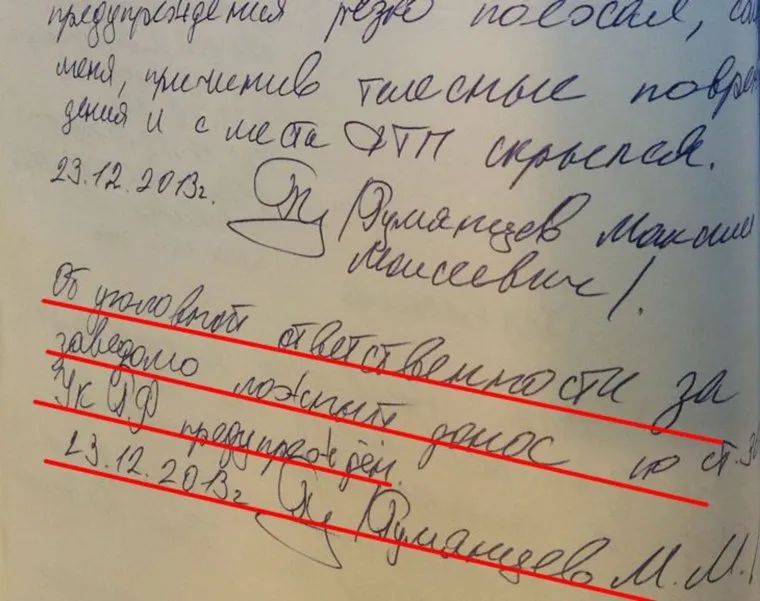 предупреждения резко поехал,
меня, причинив телесные повре
дения и с места ДТП скрылся.
23.12.2013г. /Румянцев Максим
Моисеевич/.
Об уголовной ответственности за
заведомо ложный донос по ст.30
УК РФ предупреждён.
23.12.2013г. /Румянцев М.М./